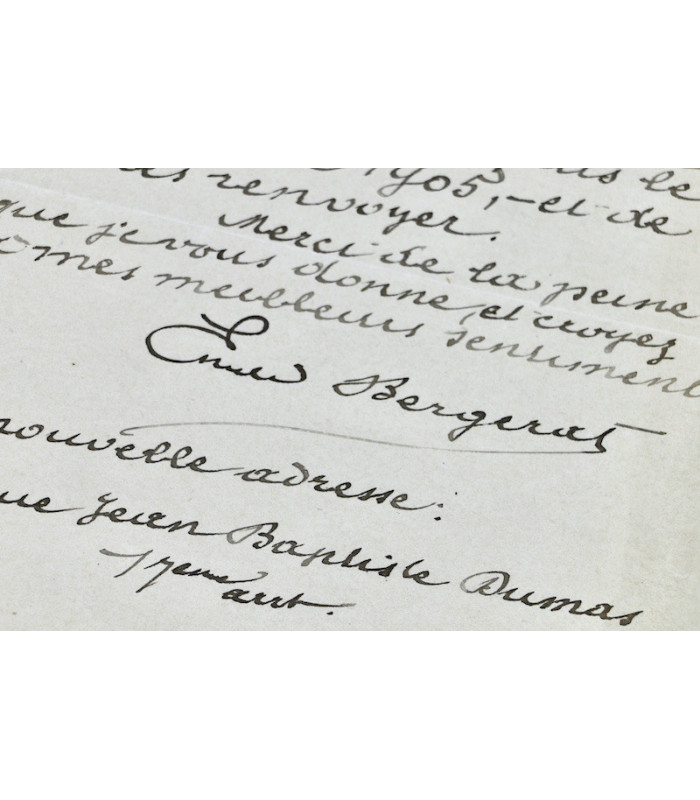 1905, - et de
renvoyer.
Merci de la peine
que je vous donne, et croyez
mes meilleurs sentiments
Emile Bergerat
nouvelle adresse:
rue Jean Baptiste Dumas
17eme arrt.